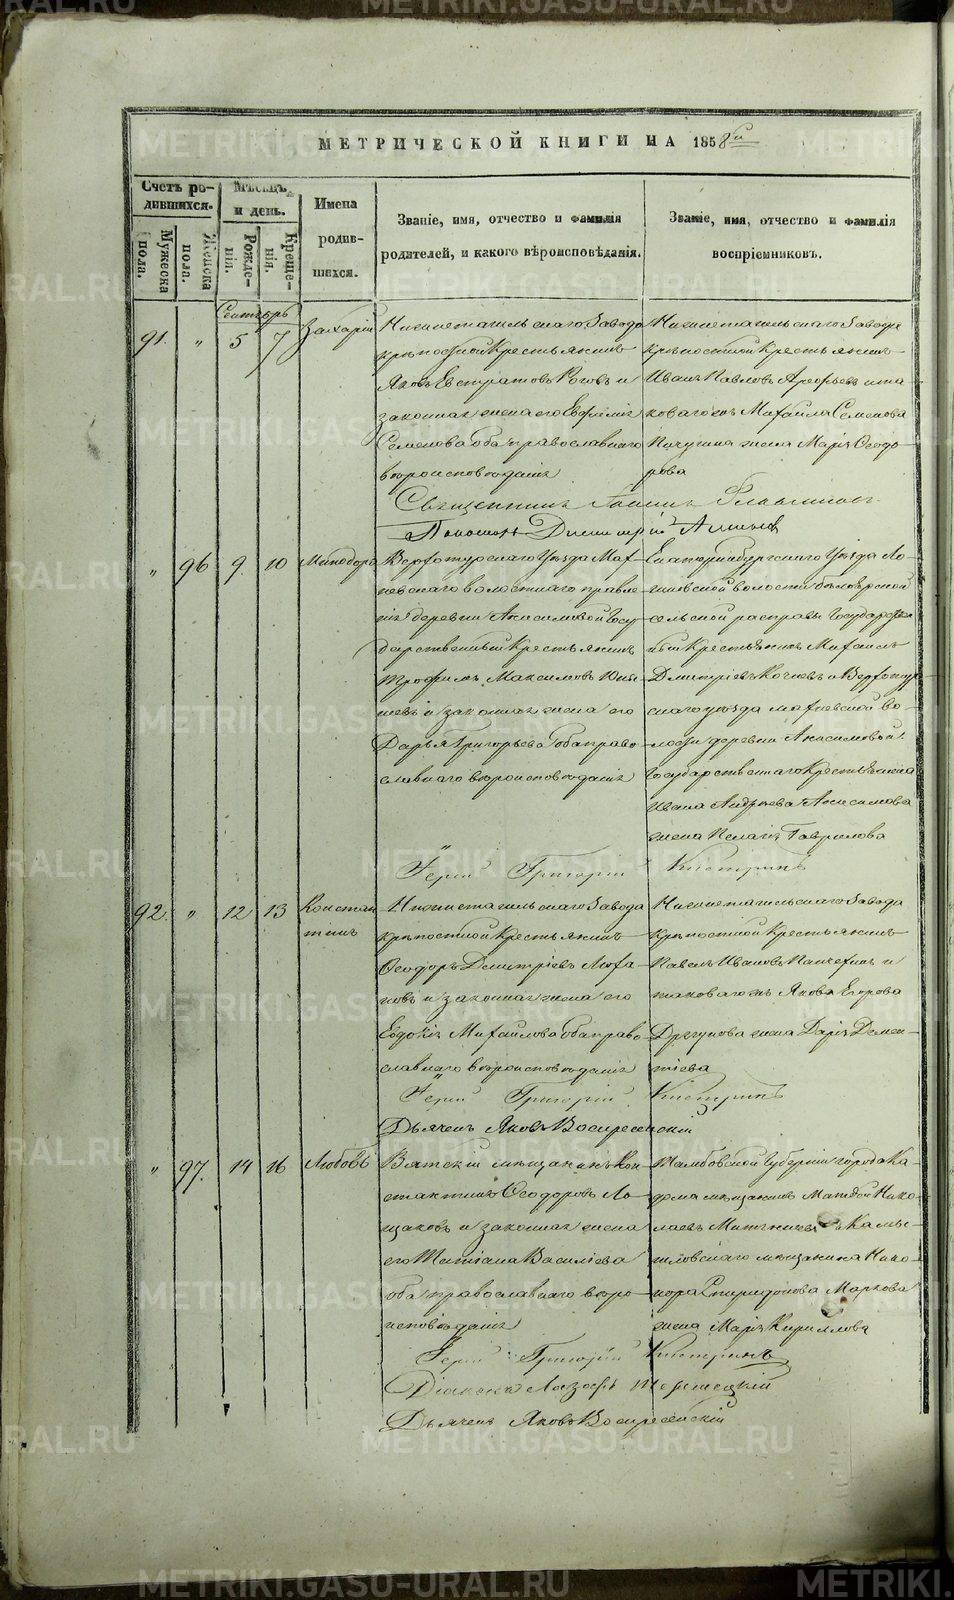 МЕТРИЧЕСКОЙ КНИГИ НА 1858й
Счетъ ро-
дившихся.
Мужеска
пола.
Женска
пола.
Мѣсяцъ
и день.
Рожде-
нія.
Креще-
нія.
Имена
родив-
шихся.
Званіе, имя, отчество и фамилія
родителей, и какого вѣроисповѣданія.
Званіе, имя, отчество и фамилія
воспріемниковъ.
Сентябрь
91. " 5 7 Захарій
Нижнетагильскаго Завода
крѣпостной Крестьянинъ
Яковъ Евстратовъ Роговъ и
законная жена его Евфимія
Семенова оба православнаго
вѣроисповѣданія
Нижнетагильскаго Завода
крѣпостной крестьянинъ
Иванъ Павловъ Арефьевъ и та
коваго жъ Михаила Семенова
Пичугина жена Марія Ѳеодо-
рова
Священникъ Іоаннъ
Пономарь Димитрій
" 96 9. 10 Минодора
Верхотурскаго Уѣзда Мах-
невскаго волостнаго правле
нія деревни Анисимовой Госу-
дарственный Крестьянинъ
Трофимъ Максимовъ
и законная жена его
Дарья Григорьева оба право-
славнаго вѣроисповѣданія
Екатеринбургскаго Уѣзда Ло-
гиновской волости бѣлоярской
сельской расправы Государствен
ный Крестьянинъ Михаилъ
Дмитріевъ Кочневъ и Верхотур-
скаго уѣзда махневской во-
лости деревни Анисимовой
Государственнаго Крестьянина
Ивана Андреева Анисимова
жена Пелагія Гаврилова
Іерей Григорій Кистринъ
92. " 12 13 Констан
тинъ
Нижнетагильскаго Завода
крѣпостной Крестьянинъ
Ѳеодоръ Дмитріевъ Ляха-
новъ и законная жена его
Евдокія Михайлова оба право-
славнаго вѣроисповѣданія
Нижнетагильскаго Завода
крѣпостной Крестьянинъ
Павелъ Ивановъ Панчехинъ и
таковаго жъ Якова Егорова
Драгунова жена Дарія Демен-
тіева
Іерей Григорій Кистринъ
Дьячекъ Яковъ Воскресенскій
" 97. 14 16 Любовь
Вятскій мѣщанинъ Кон-
стантинъ Ѳеодоровъ Ло-
щаковъ и законная жена
его Татіана Васильева
оба православнаго вѣро-
исповѣданія
Тамбовской Губерніи города Ка-
дома мѣщанинъ Матвѣй Нико-
лаевъ и Камы-
шловскаго мѣщанина Нико-
нора Спиридонова Маркова
жена Марія Кириллова
Іерей Григорій Кистринъ
Діаконъ Лазарь
Дьячекъ Яковъ Воскресенскій
METRIKI.GASO-URAL.RU